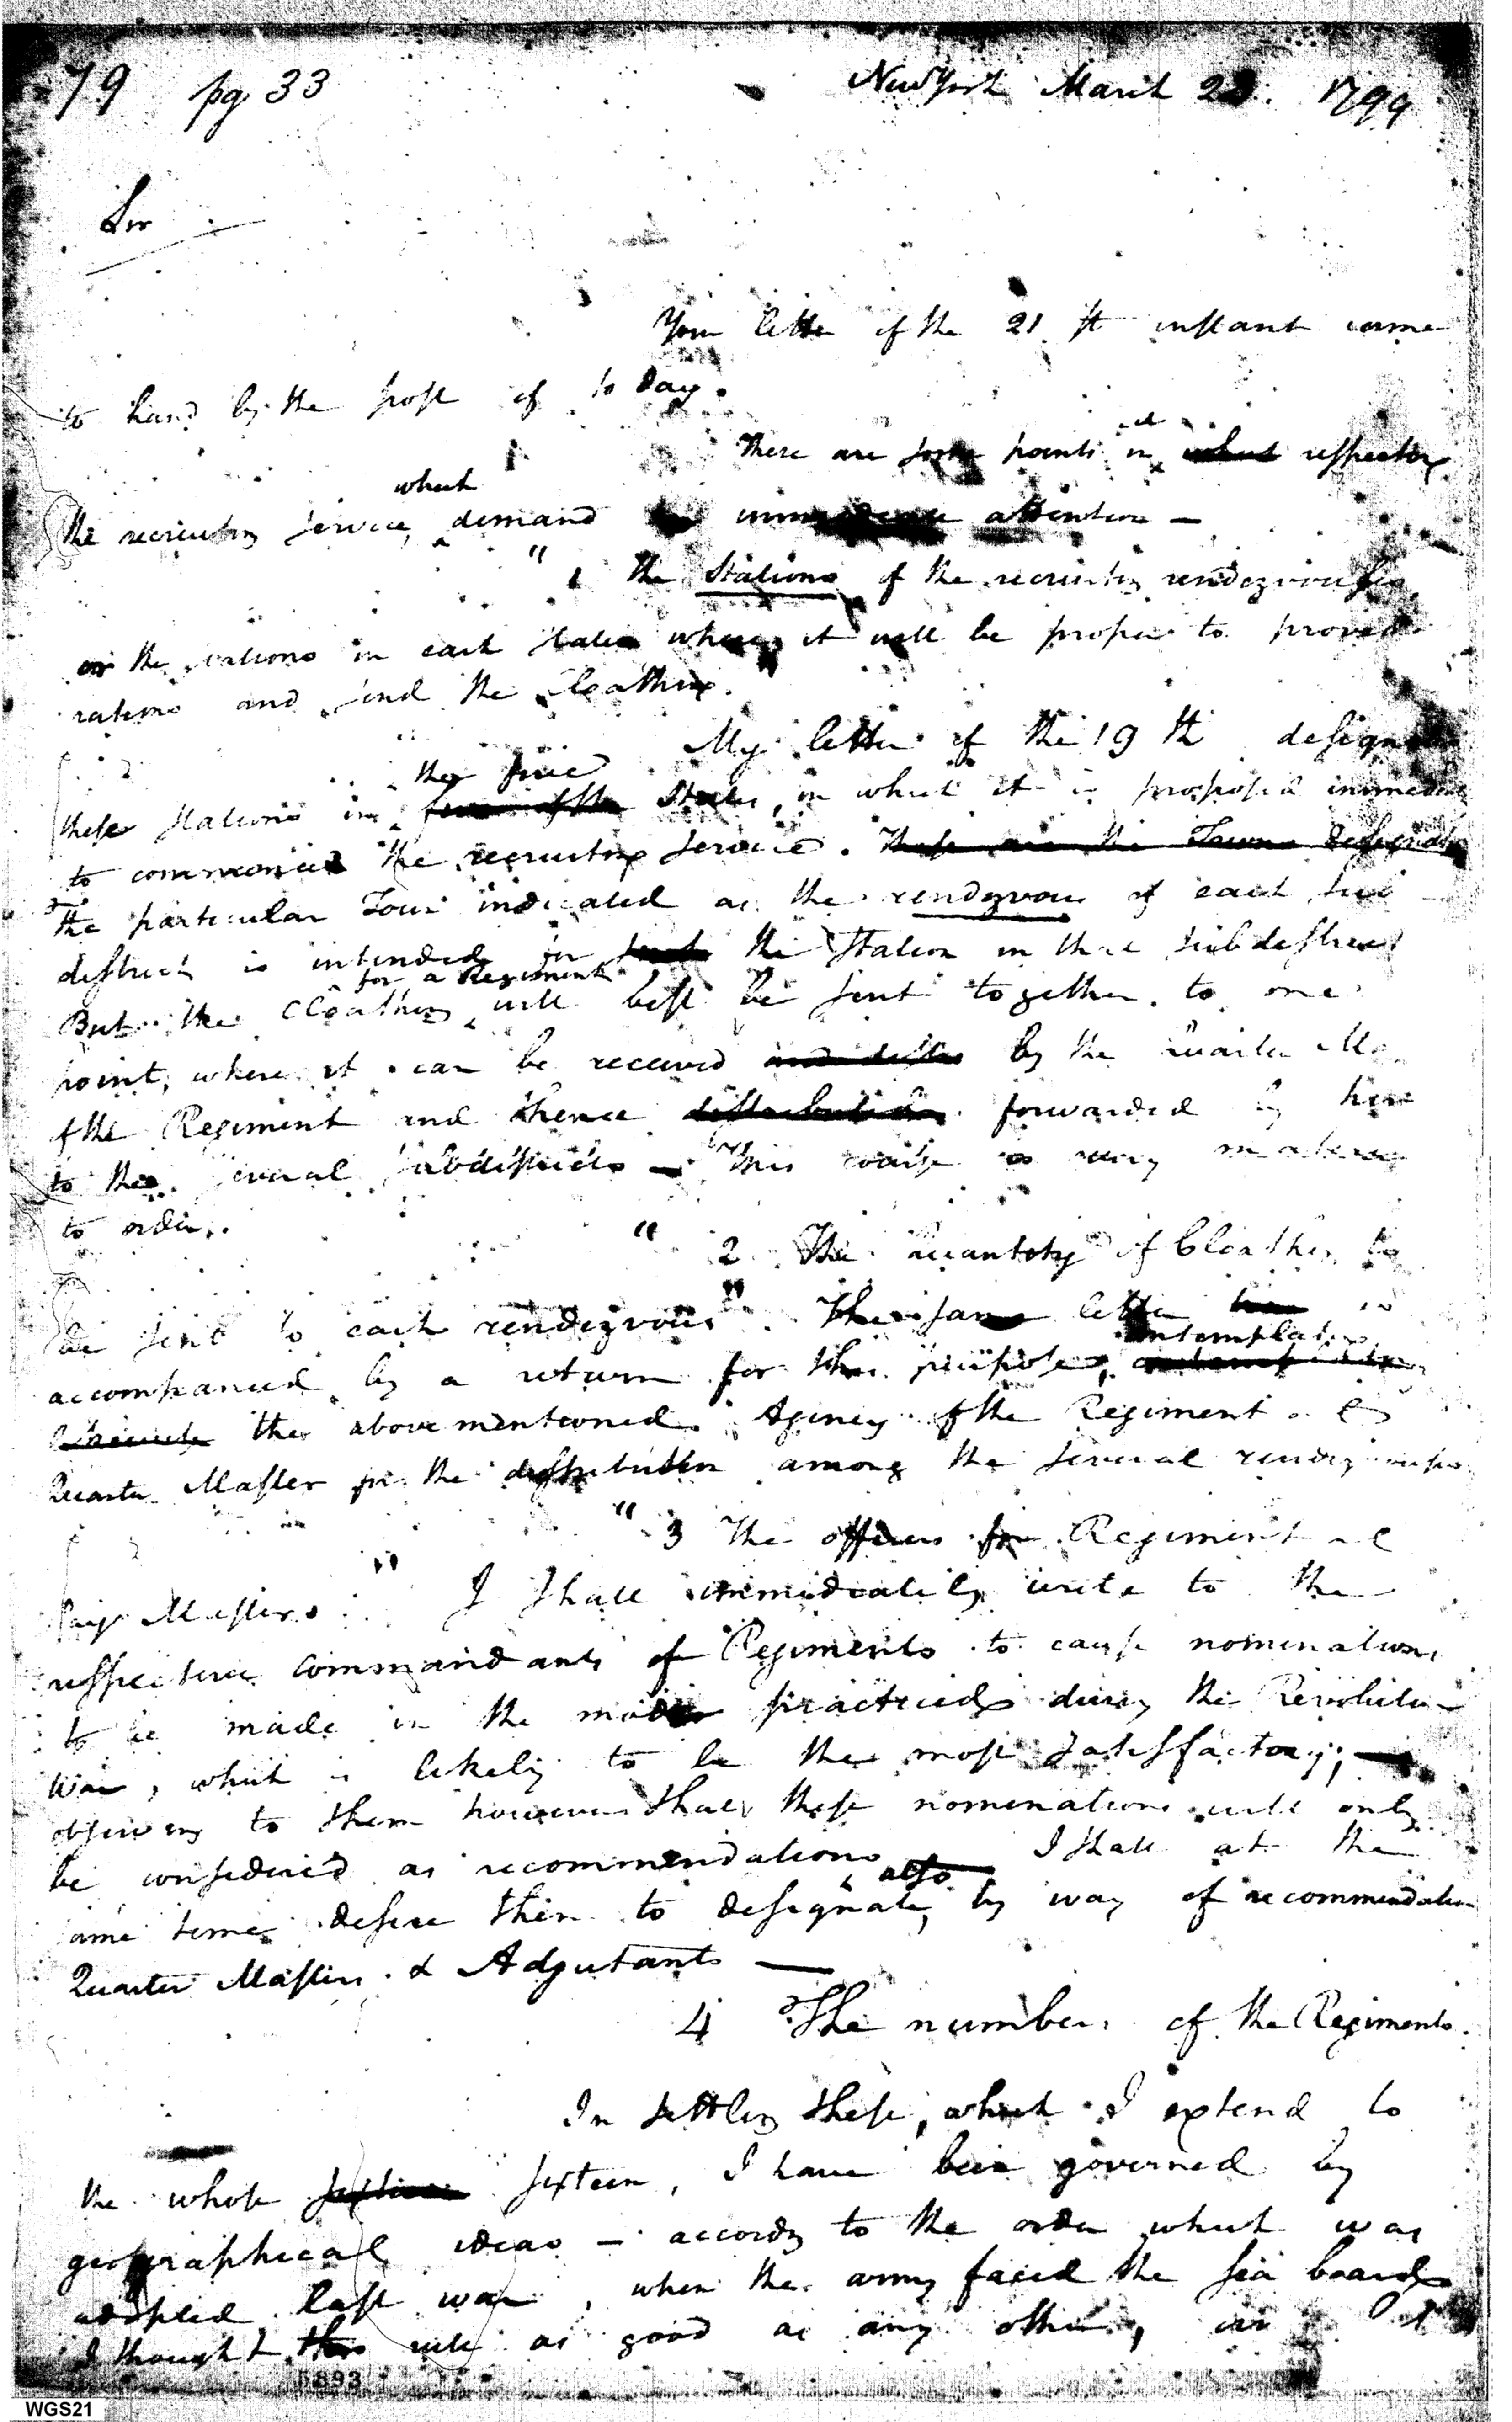 79 pg 33 New York March 23. 1799
Sir
Your letter of the 21 st instant came
to hand by the post of to day.
There are some points in respecting
which
the recruiting service, demand attention —
" 1 the Stations of the recruiting rendezvouses
or the stations in each State where it will be proper to provide
rations and send the Cloathing."
My letter of the 19 th
the five
these stations in States, in which it is proposed
to commence the recruiting service.
The particular Town indicated as the rendezvous of each sub
district is intended for the Station in that subdistrict
for a Regiment
But the Cloathing will best be sent together to one
point, where it can be received by the Quarter
of the Regiment and thence forwarded by him
to the several subdistricts — This course is very material
to order.
" 2 The quantity of Cloathing to
be sent to each rendezvous" The same letter is
contemplating
accompanied by a return for this purpose,
the above mentioned Agency of the Regimental
Quarter Master in the distribution among the several rendezvouses
" 3 The officers for Regimental
Pay Masters " I shall immediately write to the
respective commandants of Regiments to cause nominations
to be made in the mode practiced during the Revolution
War, which is likely to be the most satisfactory; —
observing to them however that these nominations will only
be considered as recommendations I shall at the
also
same time desire them to designate, by way of recommendation
Quarter Masters & Adjutants —
4 The numbers of the Regiments.
In settling these, which I extend to
the whole sixteen, I have been governed by
geographical ideas — according to the order which was
adopted last war, when the army faced the sea board
I thought this rule as good as any other,
5893
WGS21